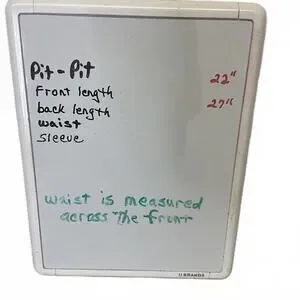 Pit-Pit 22"
Front length 27"
back length
waist
Sleeve
waist is measured
across The front
U BRANDS